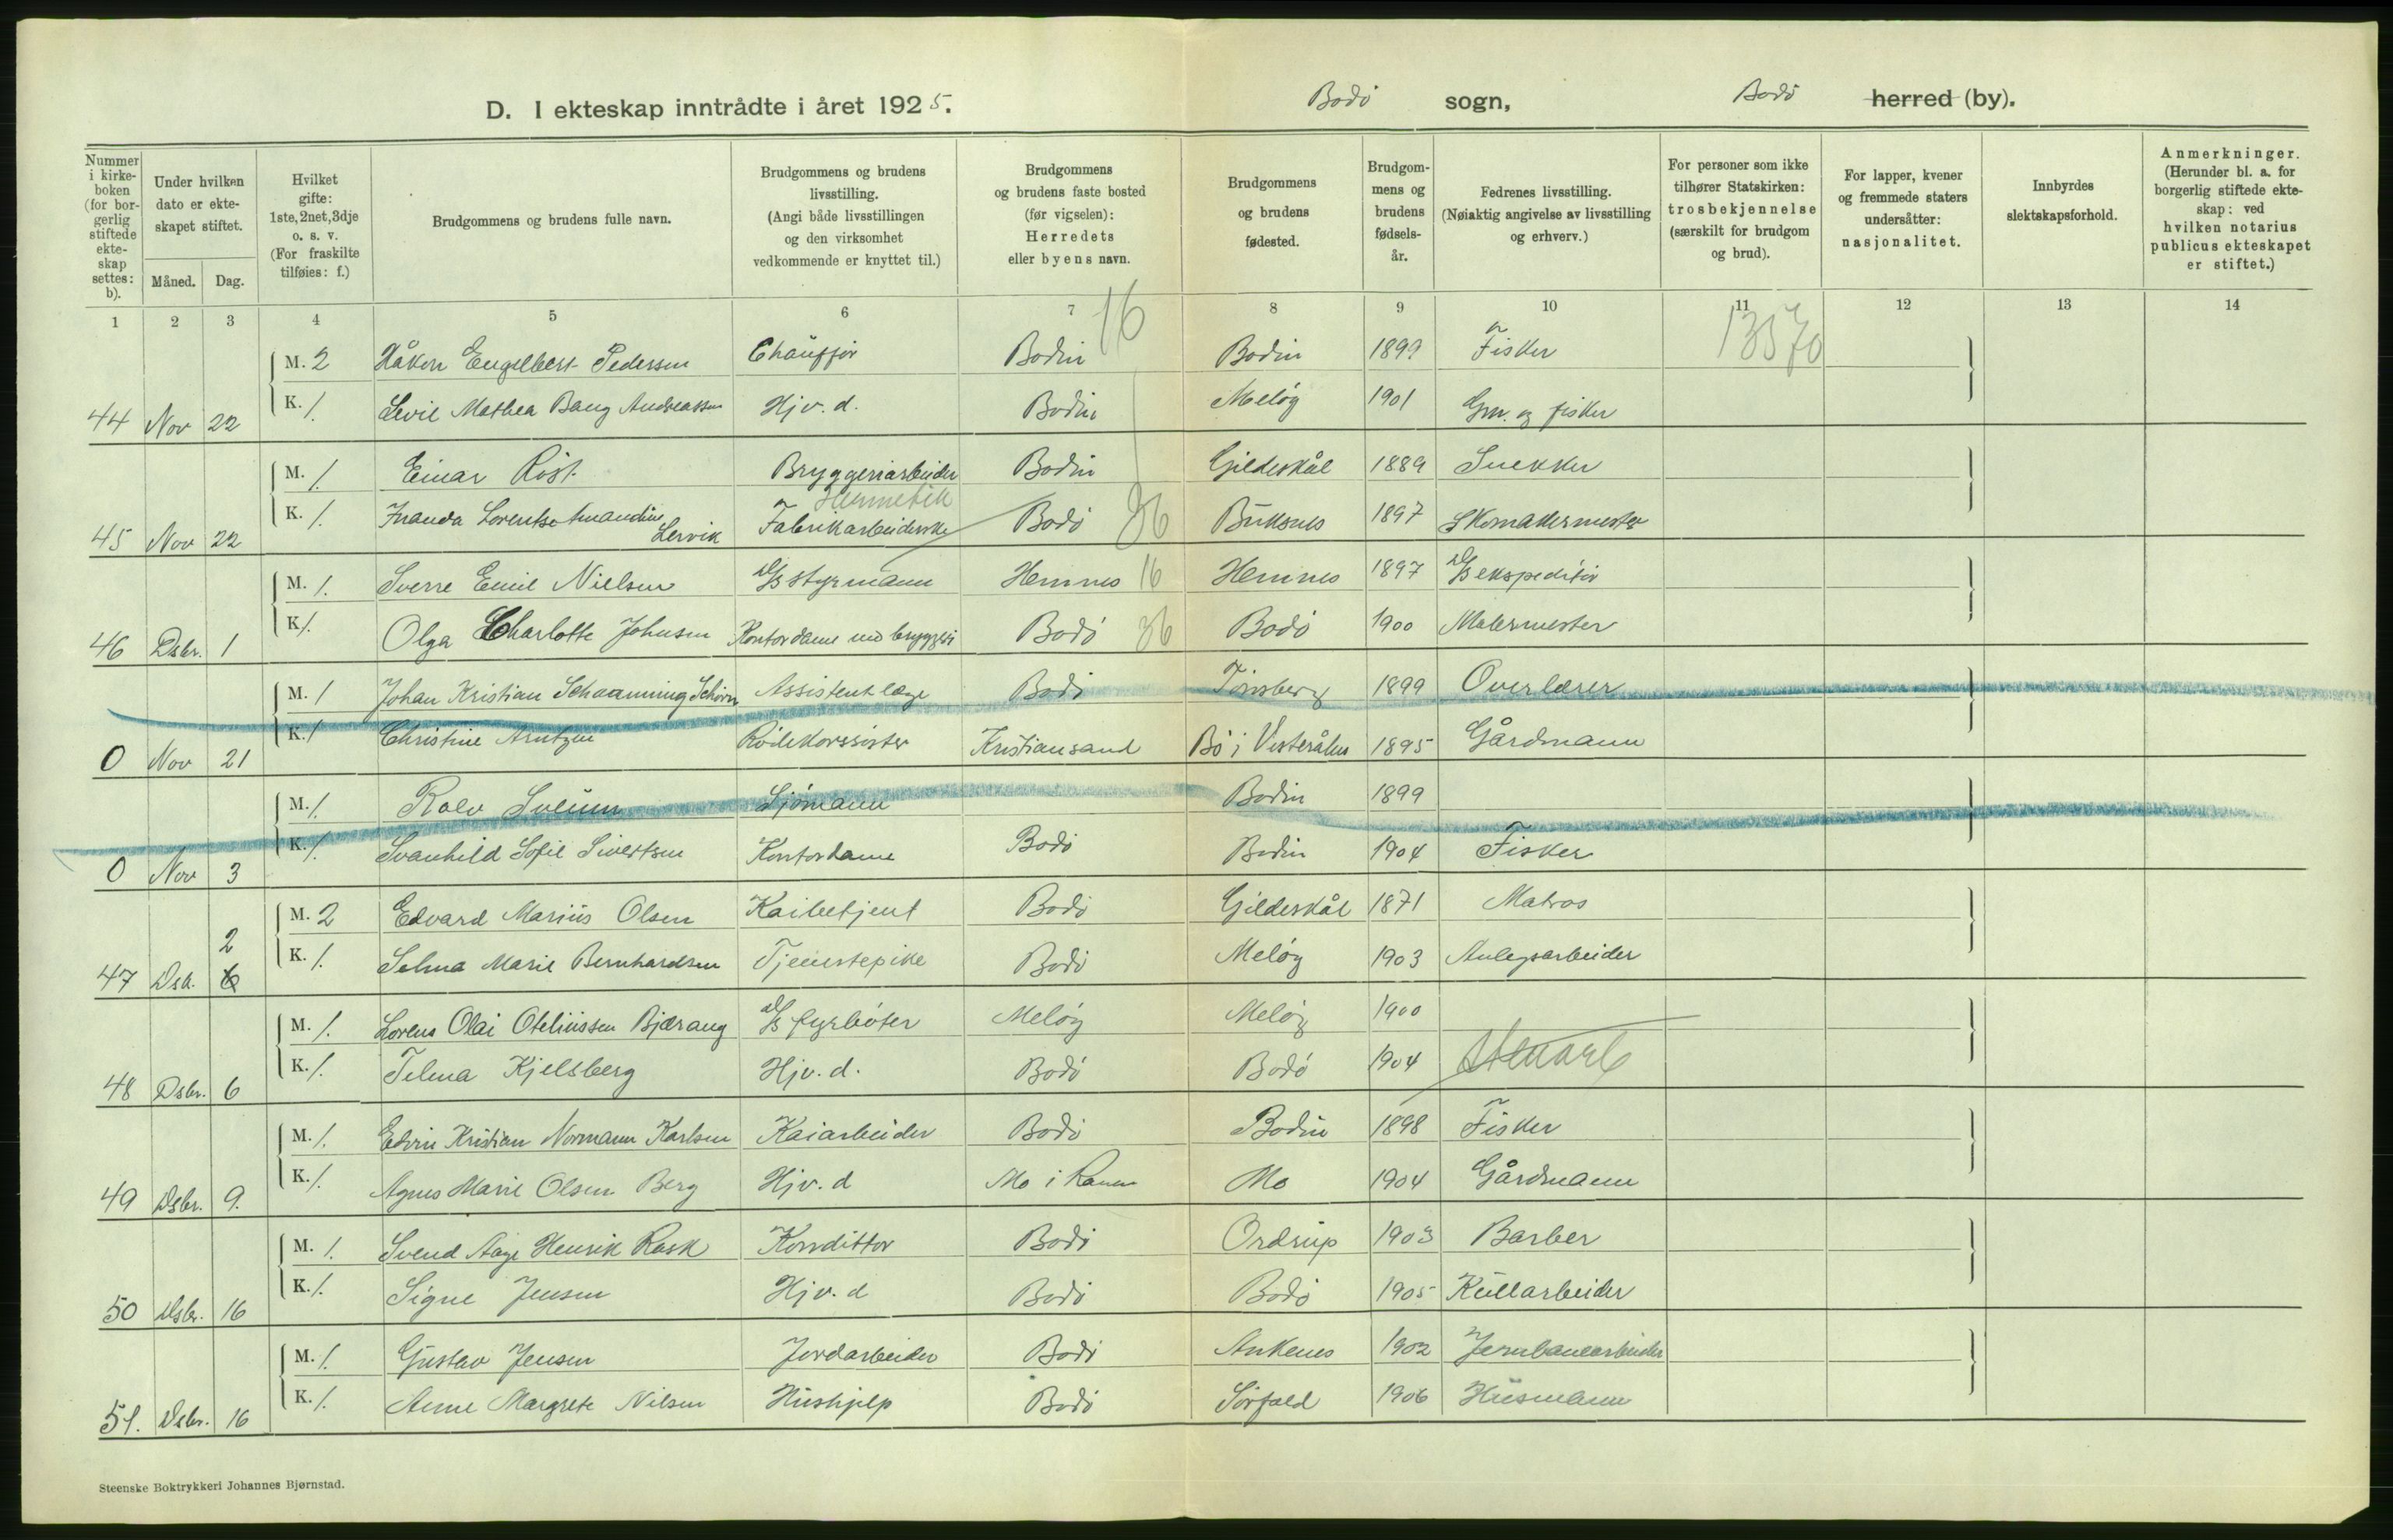 D. I ekteskap inntrådte i året 1925. Bodö sogn, Bodö herred (by).
Nummer i kirkeboken (for borgerlig stiftede ekteskap settes: b).
Under hvilken dato er ekteskapet stiftet.
Måned. Dag.
Hvilket gifte: 1ste, 2net, 3dje o. s. v. (For fraskilte tilføies: f.)
Brudgommens og brudens fulle navn.
Brudgommens og brudens livsstilling. (Angi både livsstillingen og den virksomhet vedkommende er knyttet til.)
Brudgommens og brudens faste bosted (før vigselen): Herredets eller byens navn.
Brudgommens og brudens fødested.
Brudgommens og brudens fødselsår.
Fedrenes livsstilling. (Nøiaktig angivelse av livsstilling og erhverv.)
For personer som ikke tilhører Statskirken: trosbekjennelse (særskilt for brudgom og brud).
For lapper, kvener og fremmede staters undersåtter: nasjonalitet.
Innbyrdes slektskapsforhold.
Anmerkninger. (Herunder bl. a. for borgerlig stiftede ekteskap: ved hvilken notarius publicus ekteskapet er stiftet.)
1 2 3 4 5 6 7 8 9 10 11 12 13 14
16 13570
M. 2 Håkon Engelbert Pedersen Chaufför Bodin Bodin 1899 Fisker
44 Nov 22 K. 1. Levie Mathea Bang Andreassen Hjv. d. Bodin Melöy 1901 Grn. og fisker
M. 1. Einar Röst. Bryggeriarbeider Bodin Gildeskål 1889 Snekker
Hermetik
45 Nov 22 K. 1. Lorentse Amandine Lervik Fabrikarbeiderske Bodö 36 Buksnes 1897 Skomakermester
M. 1. Sverre Emil Nielsen D/S styrmann Hemnes 16 Hemnes 1897 D/S ekspeditör
46 Dsbr. 1 K 1. Olga Charlotte Johnsen Kontordame ved bryggeri Bodö 36 Bodö 1900 Malermester
M. 1 Johan Kristian Schaanning Assistentlæge Bodö Tönsberg 1899 Overlærer
0 Nov 21 K. 1 Christine Arntzen Rödekorssöster Kristiansand Bö i Vesterålen 1895 Gårdmann
M. 1. Rolv Sveum Sjömann Bodin 1899
0 Nov 3 K. 1. Svanhild Sofie Sivertsen Kontordame Bodö Bodin 1904 Fisker
M. 2 Edvard Marius Olsen Kaibetjent Bodö Gildeskål 1871 Matros
2
47 Dsb. 6 K. 1. Selma Marie Bernhardsen Tjenestepike Bodö Melöy 1903 Anlegsarbeider
M. 1. Lorens Olai Oteliussen Bjærang D/S fyrböter Melöy Melöy 1900
48 Dsbr. 6 K. 1. Telma Kjelsberg Hjv. d. Bodö Bodö 1904
M. 1. Edvin Kristian Normann Karlsen Kaiarbeider Bodö Bodin 1898 Fisker
49 Dsbr. 9. K. 1. Agnes Marie Olsen Berg Hjv. d Mo i Ranen Mo 1904 Gårdmann
M. 1. Svend Aage Henrik Rask Kondittor Bodö Ordrup 1903 Barber
50 Dsbr. 16 K. 1. Signe Jensen Hjv. d Bodö Bodö 1905 Kullarbeider
M. 1. Gustav Jensen Jordarbeider Bodö Ankenes 1902 Jernbanearbeider
51. Dsbr. 16 K. 1. Anne Margrete Nilsen Hushjelp Bodö Sörfold 1906 Husmann
Steenske Boktrykkeri Johannes Bjørnstad.